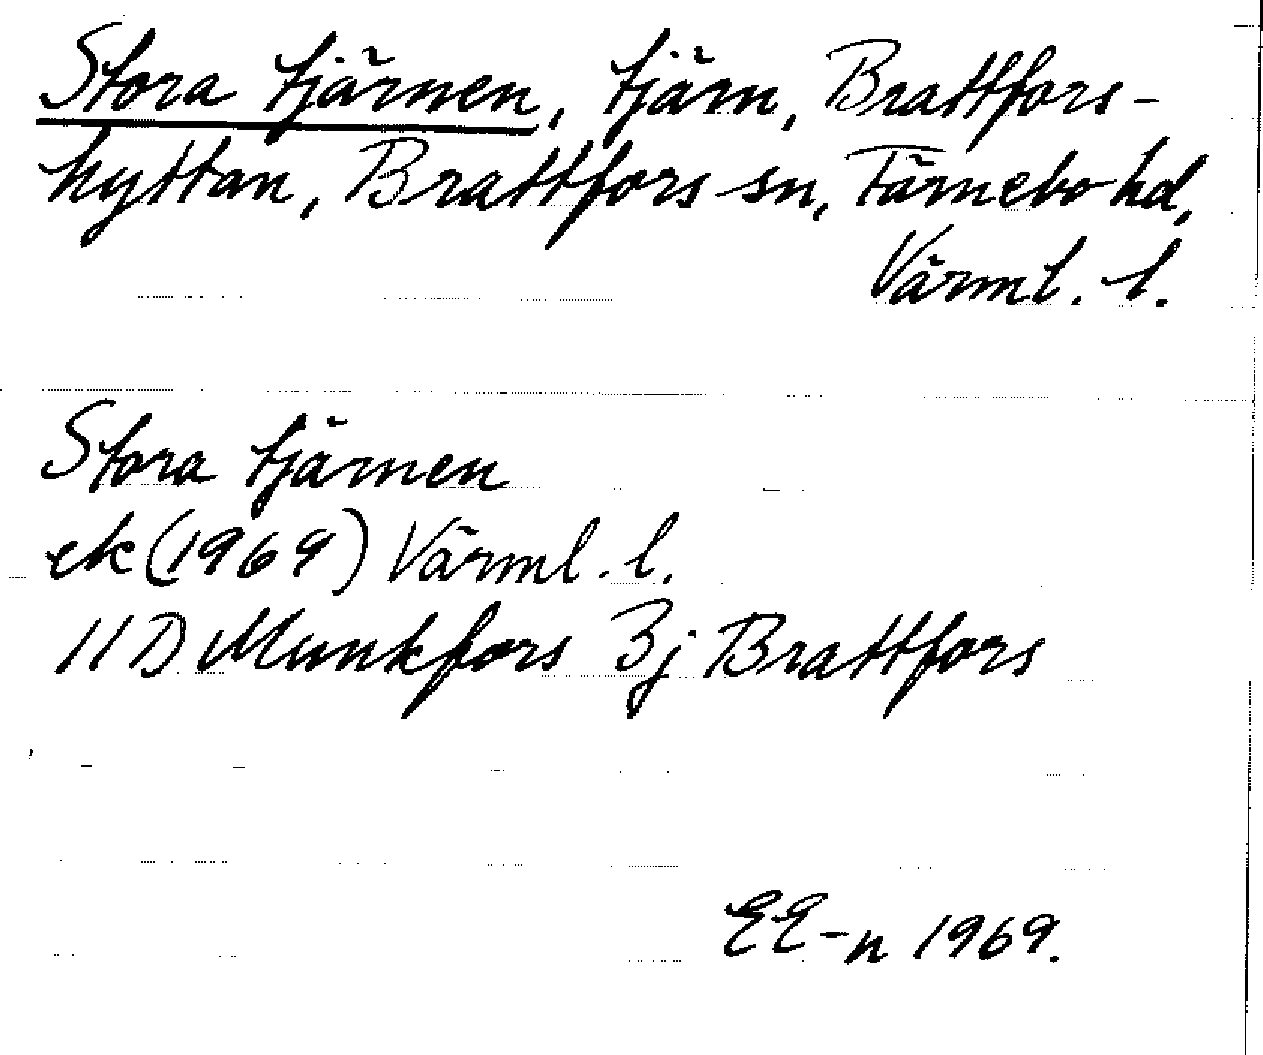 Stora tjärnen, tjärn, Brattfors-
hyttan, Brattfors sn, Färnebo hd,
Värml. l.
Stora tjärnen
ek (1969) Värml. l.
11 D Munkfors 3j Brattfors
EE-n 1969.